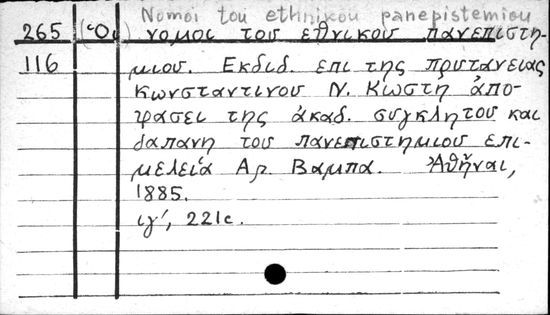 Nomoi tou ethnikou panepistemiou
265 (Ὁι) νομοι του εθνικου πανεπιστη-
116 μιου. Εκδιδ. επι της πρυτανειας
Κωνσταντινου Ν. Κωστη ἀπο-
φασει της ἀκαδ. συγκλητου και
δαπανη του πανεπιστημιου επι-
μελείᾳ Αρ. Βαμπα. Ἀθῆναι,
1885.
ιγ', 221c.